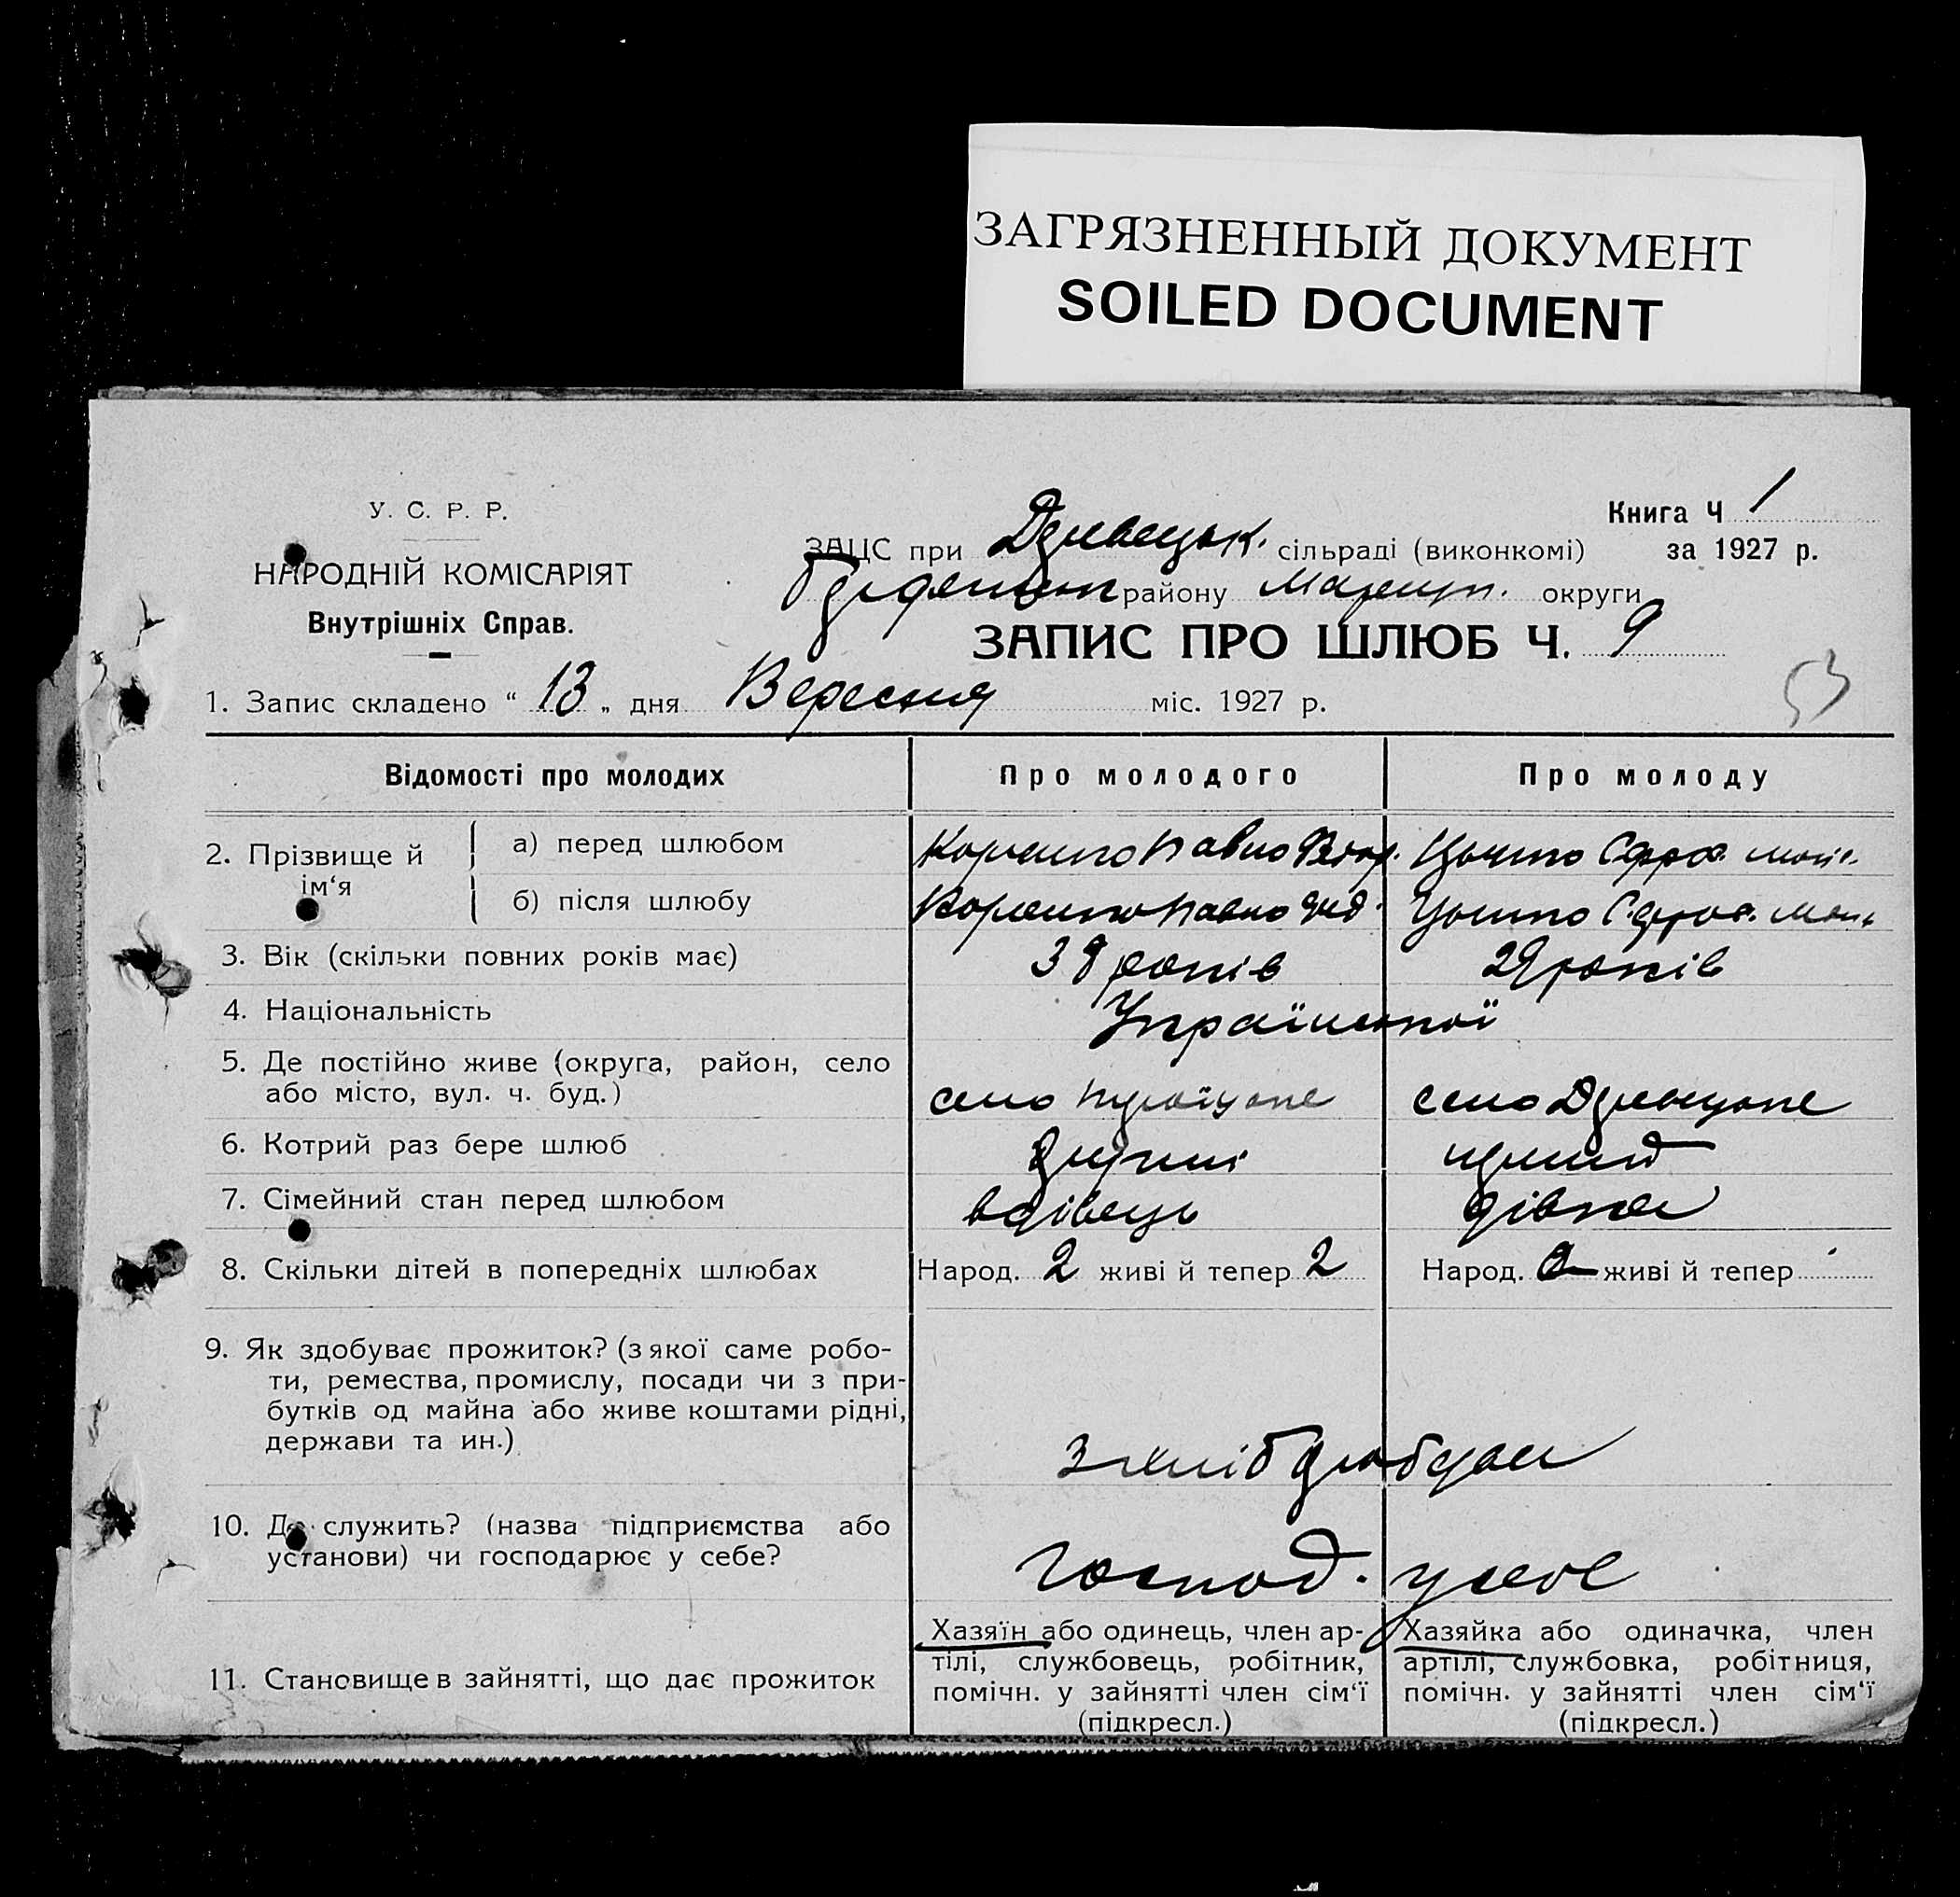 ЗАГРЯЗНЕННЫЙ ДОКУМЕНТ
SOILED DOCUMENT
У. С. Р. Р.
НАРОДНІЙ КОМІСАРІЯТ
Внутрішніх Справ.
Книга Ч 1
за 1927 р.
ЗАЦС при сільраді (виконкомі)
району Маріуп. округи
ЗАПИС ПРО ШЛЮБ Ч. 9
53
1. Запис складено “ 13 „ дня Вересня міс. 1927 р.
Відомості про молодих
Про молодого
Про молоду
2. Прізвище й ім‘я
а) перед шлюбом
Павло
б) після шлюбу
Павло
3. Вік (скільки повних років має)
років
29 років
4. Національність
Української
5. Де постійно живе (округа, район, село
або місто, вул. ч. буд.)
село
село
6. Котрий раз бере шлюб
7. Сімейний стан перед шлюбом
вдівець
дівка
8. Скільки дітей в попередніх шлюбах
Народ. 2 живі й тепер 2
Народ. живі й тепер
9. Як здобуває прожиток? (з якої саме робо-
ти, ремества, промислу, посади чи з при-
бутків од майна або живе коштами рідні,
держави та ин.)
З
10. Де служить? (назва підприємства або
установи) чи господарює у себе?
Господ. у себе
11. Становище в зайнятті, що дає прожиток
Хазяїн або одинець, член ар-
тілі, службовець, робітник,
помічн. у зайнятті член сім‘ї
(підкресл.)
Хазяйка або одиначка, член
артілі, службовка, робітниця,
помічн. у зайнятті член сім‘ї
(підкресл.)